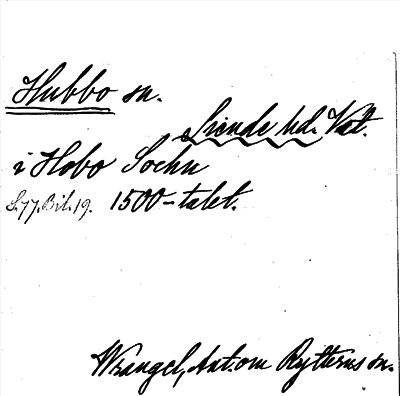 Hubbo sn.
Siende hd. Vstm.
i Hobo Sochn
S. 77. Bil. 19. 1500-talet.
Wrangel, Ant. om Rytterns sn.